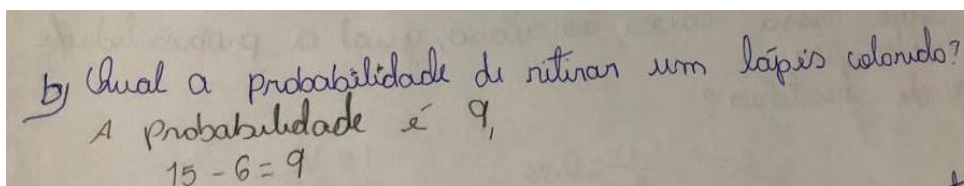 b) Qual a probabilidade de retirar um lápis colorido?
A probabilidade é 9,
15 - 6 = 9